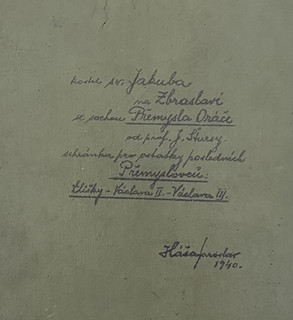 kostel sv. Jakuba
na Zbraslavi
se sochou Přemysla Oráče
od prof. J. Štursy
schránka pro ostatky posledních
Přemyslovců:
Elišky - Václava II. - Václava III.
1940.